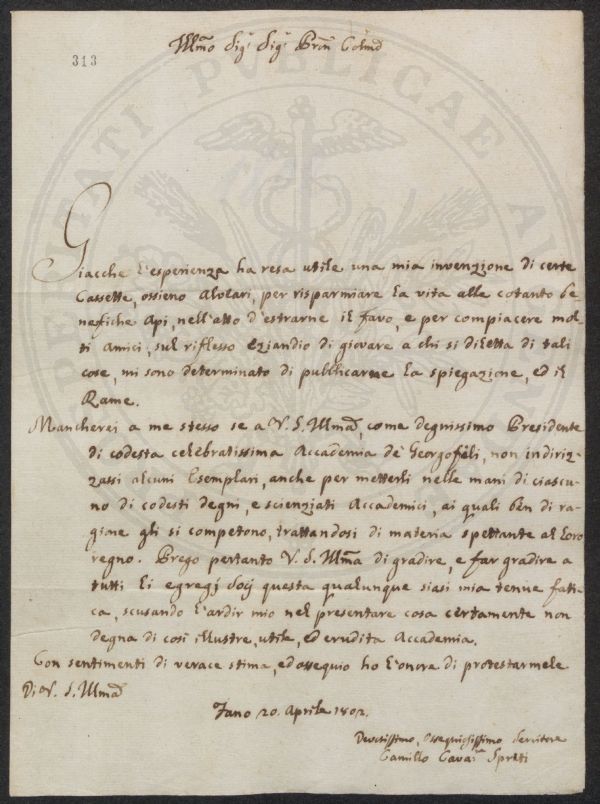 Illmo Sigr Sigr Prōn Colmo
313
Giacche l'esperienza ha resa utile una mia invenzione di certe
Cassette, ossieno Alvolari, per risparmiare la vita alle cotanto be
nefiche Api, nell'atto d'estrarne il favo, e per compiacere mol-
ti Amici, sul riflesso eziandio di giovare a chi si diletta di tali
cose, mi sono determinato di pubblicarne la spiegazione, ed il
Rame.
Mancherei a me stesso se a V. S. Illma, come degnissimo Presidente
di codesta celebratissima Accademia de' Georgofili, non indiriz-
zassi alcuni Esemplari, anche per metterli nelle mani di ciascu-
no di codesti degni, e scienziati Accademici, ai quali ben di ra-
gione gli si competono, trattandosi di materia spettante al loro
regno. Prego pertanto V. S. Illma di gradire, e far gradire a
tutti li egregj Socj questa qualunque siasi mia tenue fati-
ca, scusando l'ardir mio nel presentare cosa certamente non
degna di così illustre, utile, ed erudita Accademia.
Con sentimenti di verace stima, ed ossequio ho l'onore di protestarmele
Di V. S. Illma
Fano 20. Aprile 1802.
Devotissimo, Ossequiosissimo Servitore
Camillo Cavar Spreti